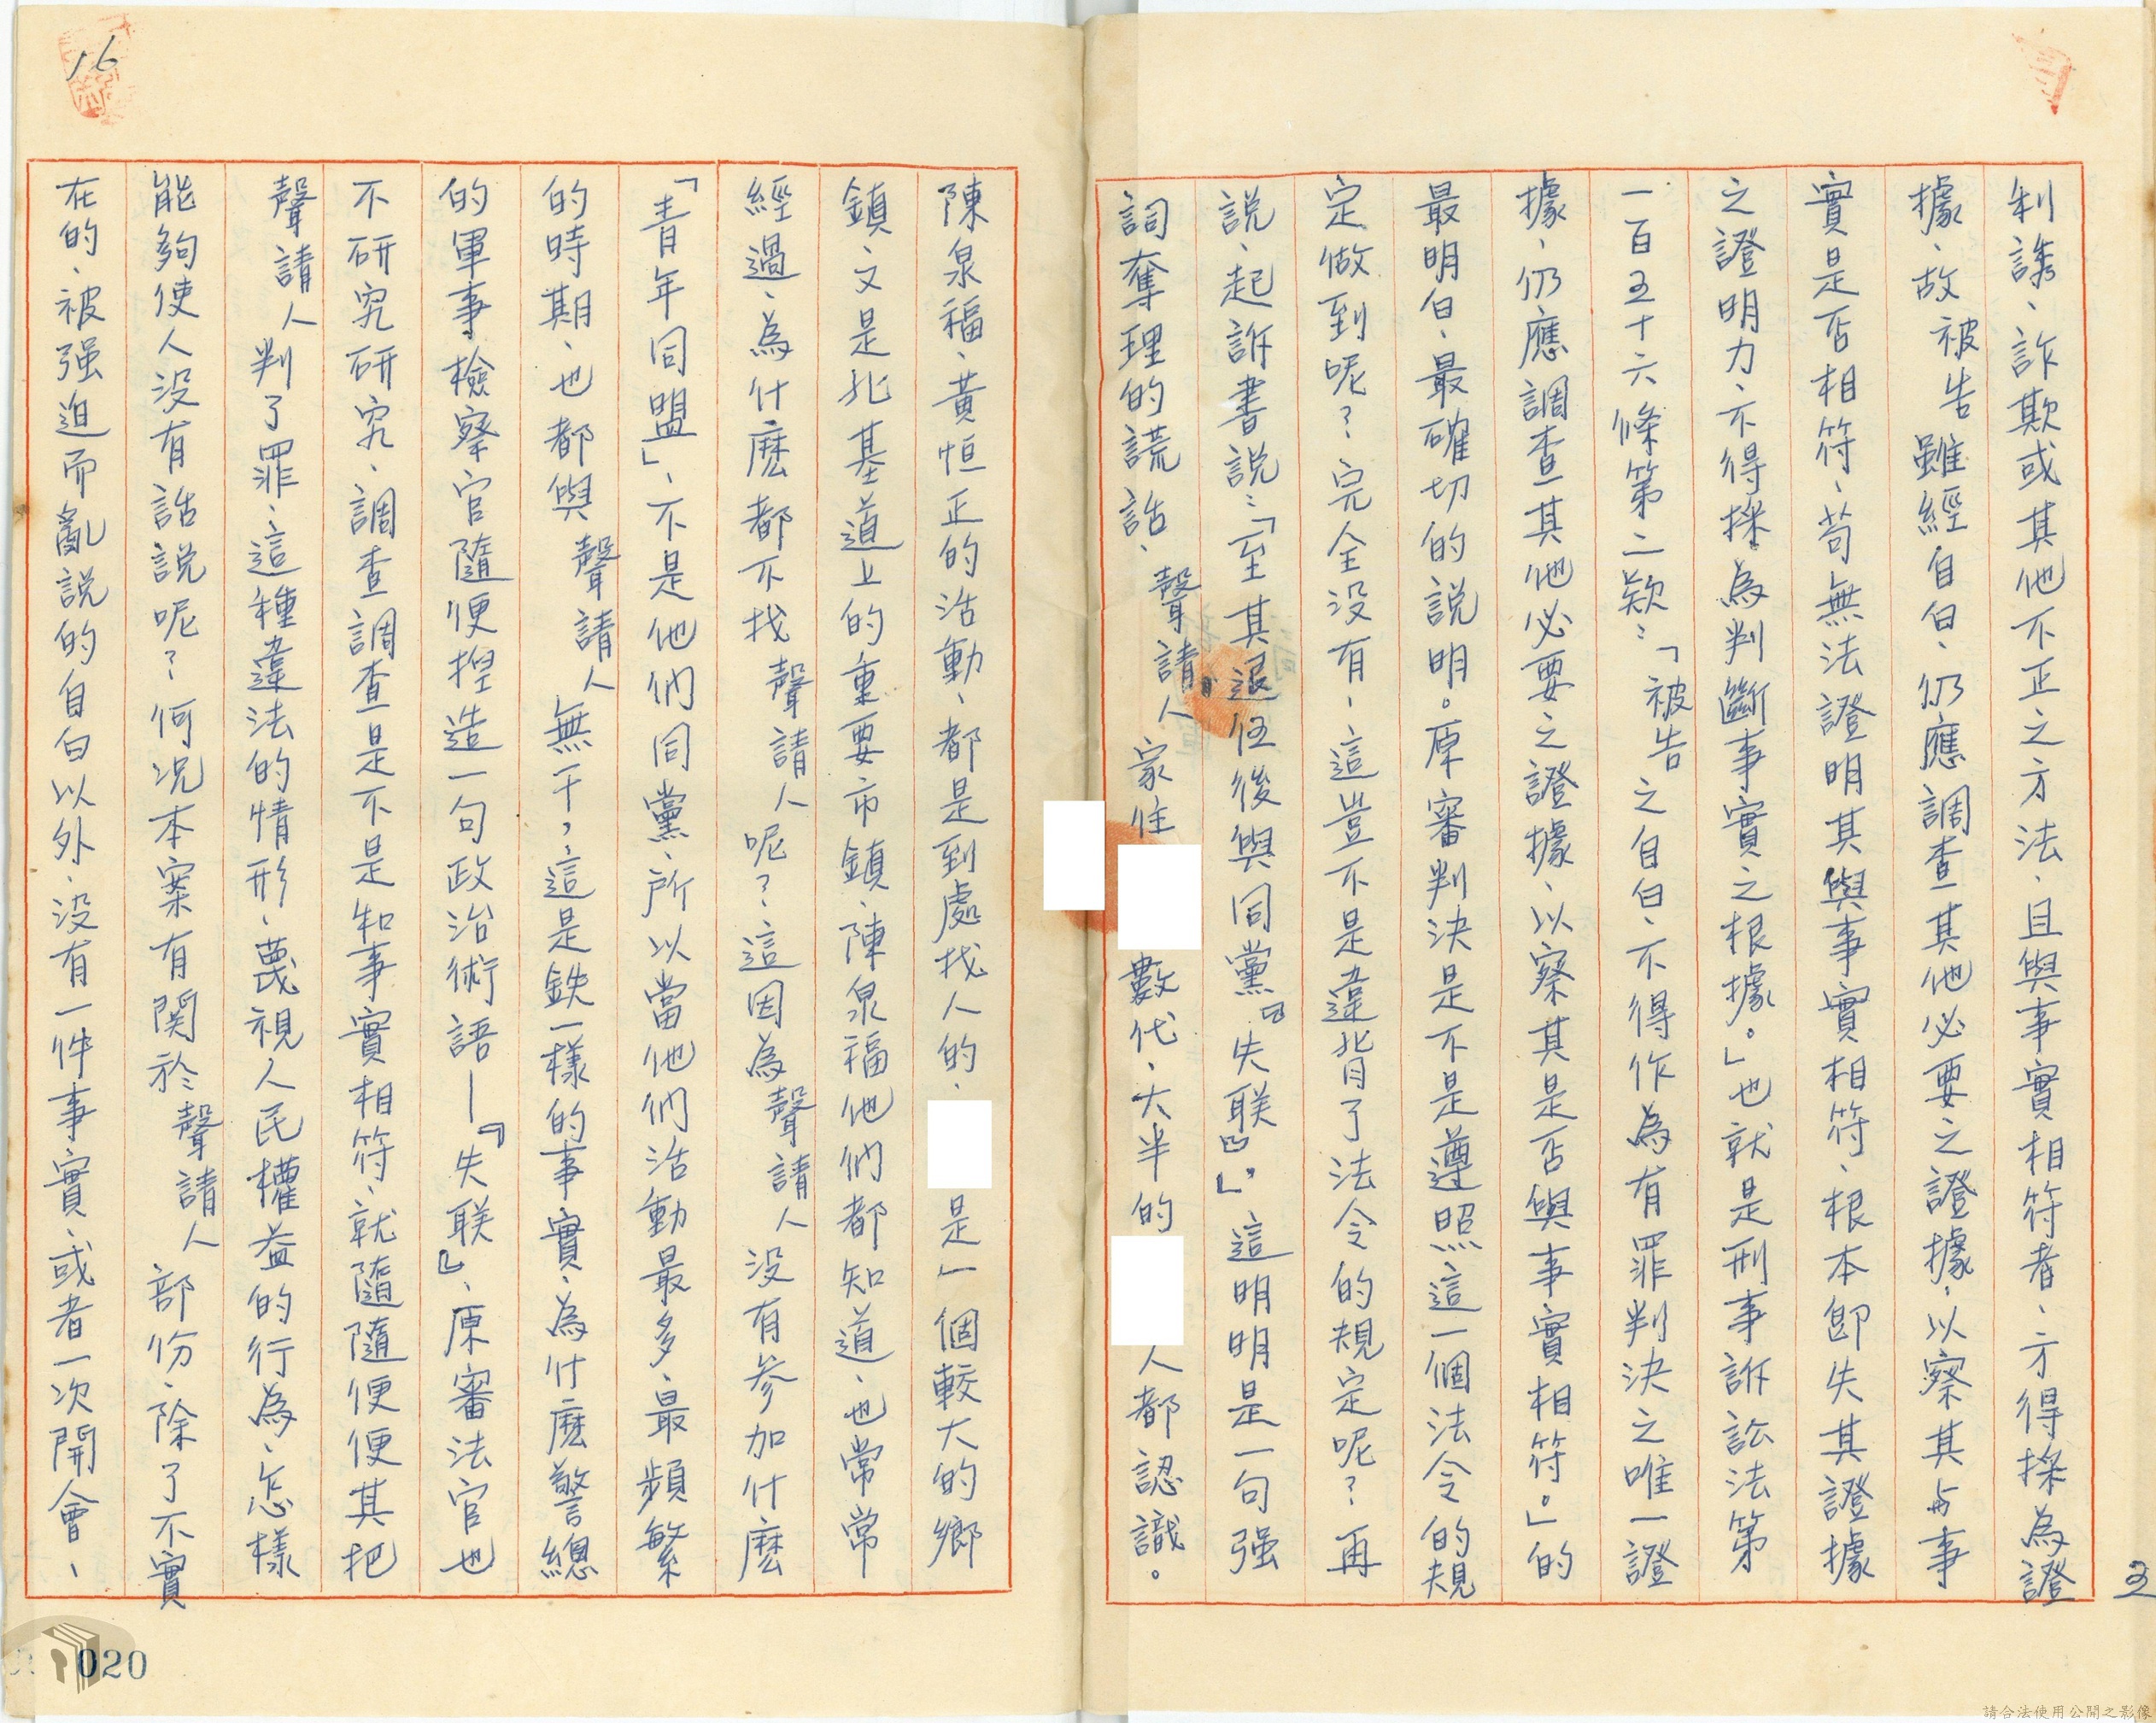 利誘、詐欺或其他不正之方法、且與事實相符者、方得採為證
據、故被告雖經自白、仍應調查其他必要之證據、以察其與事
實是否相符、苟無法證明其與事實相符、根本卽失其證據
之證明力、不得採為判斷事實之根據。」也就是刑事訴訟法第
一百五十六條第二欵：「被告之自白、不得作為有罪判決之唯一證
據、仍應調查其他必要之證據、以察其是否與事實相符。」的
最明白、最確切的説明。原審判決是不是遵照這一個法令的規
定做到呢？完全没有、這豈不是違背了法令的規定呢？再
説、起訴書説：「至其退伍後與同黨『失联』」，這明明是一句强
詞奪理的謊話、聲請人家住數代、大半的人都認識。
陳泉福、黃恒正的活動、都是到處找人的、是一個較大的鄉
鎮、又是北基道上的重要市鎮、陳泉福他們都知道、也常常
經過、為什麽都不找聲請人呢？這因為聲請人没有參加什麽
「青年同盟」、不是他們同黨、所以當他們活動最多、最頻繁
的時期、也都與聲請人無干，這是鉄一樣的事實、為什麽警總
的軍事檢察官隨便揑造一句政治術語—『失联』、原審法官也
不研究研究、調查調查是不是和事實相符、就隨隨便便其把
聲請人判了罪、這種違法的情形、蔑視人民權益的行為、怎樣
能夠使人没有話説呢？何况本案有関於聲請人部份、除了不實
在的、被强迫而亂説的自白以外、没有一件事實、或者一次開會、
16
020
3
請合法使用公開之影像